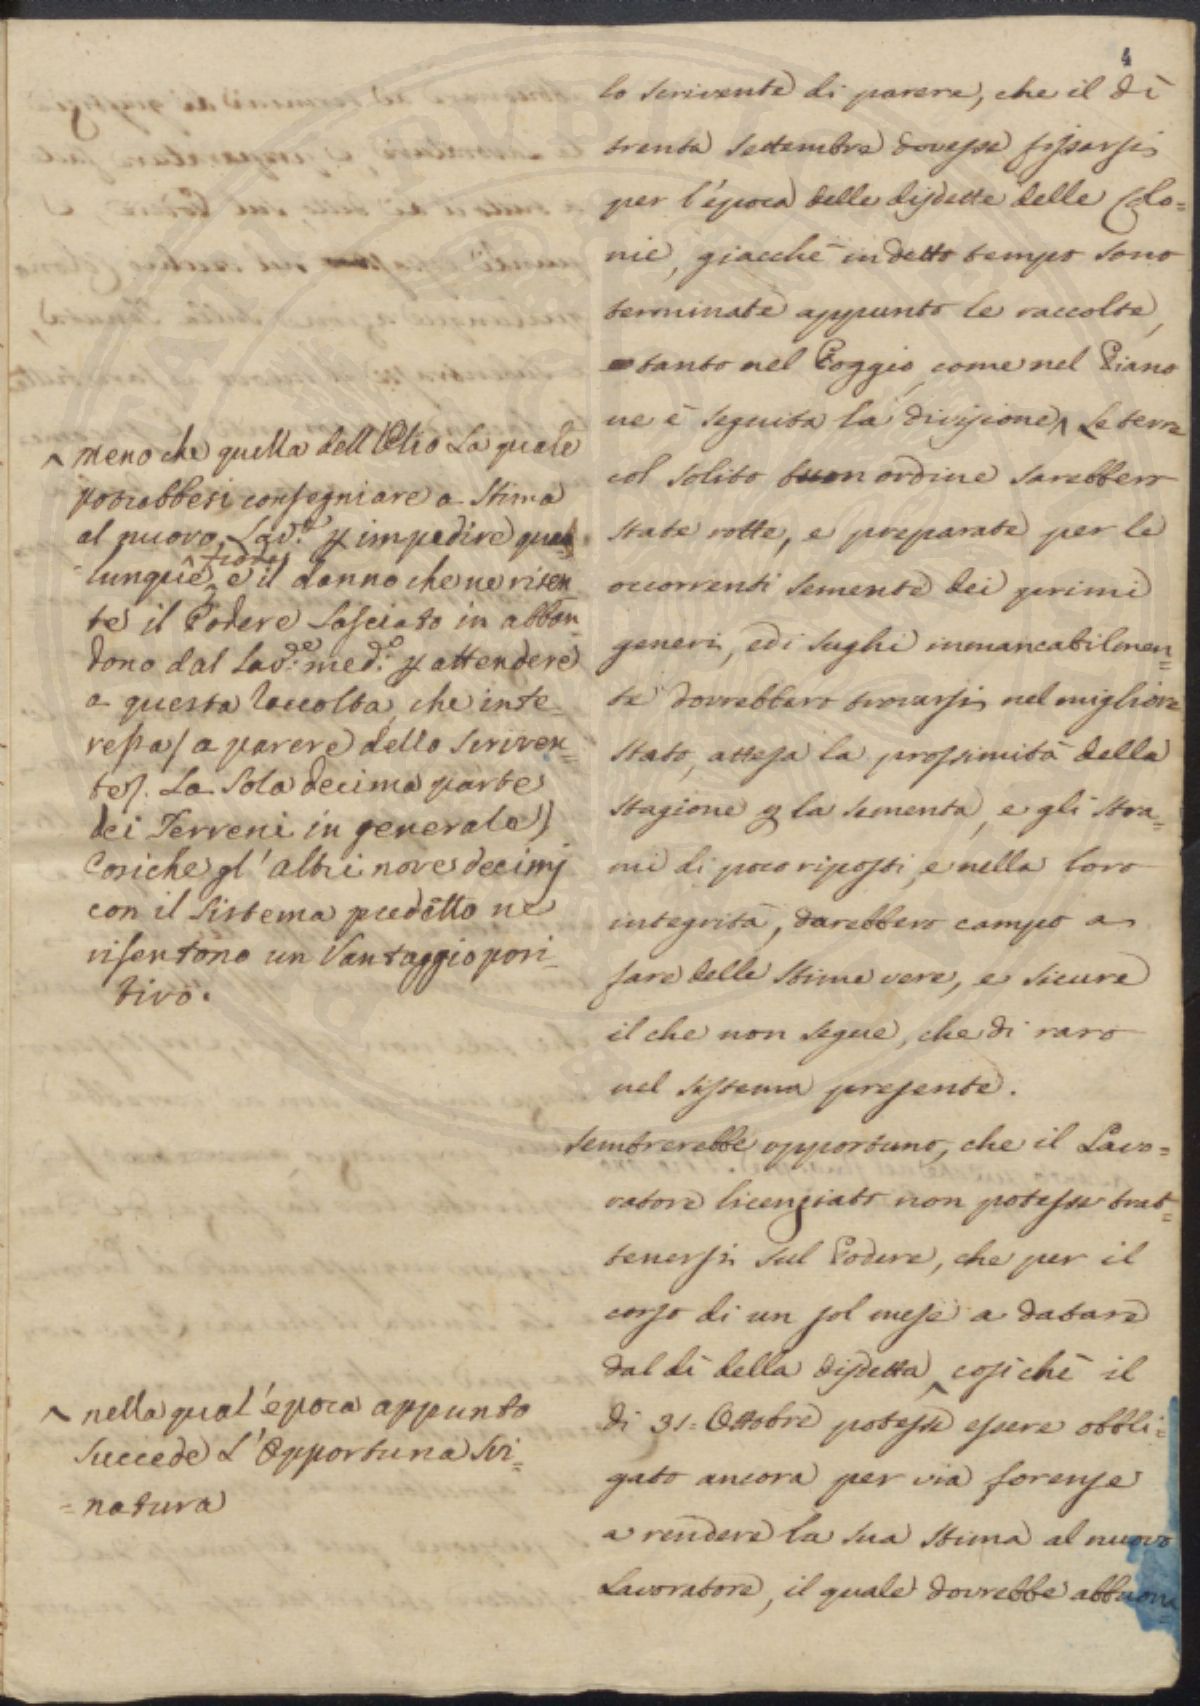 4
lo scrivente di parere, che il dì
trenta Settembre dovesse fissarsi
per l'época delle disdette delle Colo=
nie, giacchè in detto tempo sono
terminate appunto le raccolte,
tanto nel Poggio, come nel Piano
ne è seguita la divisione, ^ Le terre
col solito buon ordine sarebbero
state rotte, e preparate per le
occorrenti semente dei primi
generi, ed i sughi immancabilmen=
te dovrebbero trovarsi nel migliore
stato, attesa la prossimità della
stagione p la sementa, e gli stra=
mi di poco riposti, e nella loro
integrità, darebbero campo a
fare delle stime vere, e sicure
il che non segue, che di raro
nel sistema presente.
Sembrerebbe opportuno, che il Lavo=
ratore licenziato non potesse trat=
tenersi sul Podere, che per il
corso di un sol mese a datare
dal dì della disdetta, ^ cosichè il
di 31= Ottobre potesse essere obbli=
gato ancora per via forense
a rendere la sua stima al nuovo
Lavoratore, il quale dovrebbe abbuona
^ meno che quella dell'Olio La quale
potrebbesi consegniare a Stima
al nuovo Lav.e p impedire qua
lunque ^ frode, e il danno che ne risen
te il Podere lasciato in abban=
dono dal Lav.e med.o p attendere
a questa Raccolta, che inte=
ressa / a parere dello Scriven=
te /. La Sola decima parte
dei Terreni in generale)
Cosiche gl'altri nove decimj
con il Sistema predetto ne
risentono un Vantaggio posi=
tivo.
^ nella qual'época appunto
Succede L'Opportuna Svi=
=natura